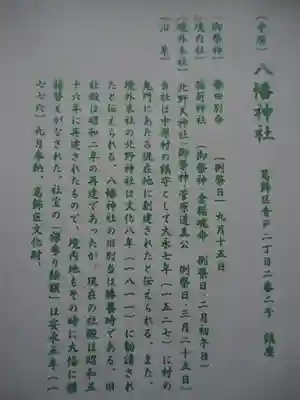 (中原) 八幡神社
葛飾区青戸二丁目二番二号 鎮座
〔御祭神〕誉田別命 〔例祭日〕九月十五日
〔境内社〕稲荷神社 (御祭神・倉稲魂命 例祭日・二月初午日)
〔境外末社〕北野天神社 (御祭神・菅原道真公 例祭日・三月二十五日)
〔沿革〕
当社は中原村の鎮守として大永七年(一五二七)に村の
鬼門にあたる現在地に創建されたと伝えられる。また、
境外末社の北野神社は文化八年(一八一一)に勧請され
たと伝えられる。八幡神社の旧別当は勝養寺である。旧
社殿は昭和二年の再建であったが、現在の社殿は昭和五
十六年に再建されたもので、境内地もその時に大幅に模
様替えがなされた。社宝の「網曳き絵額」は安永五年(一
七七六)九月奉納、葛飾区文化財。